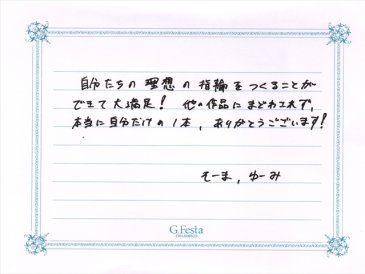 自分たちの理想の指輪をつくることが
できて大満足！他の作品にまどわされず、
本当に自分だけの1本、ありがとうございます！
そーま、ゆーみ
G.Festa